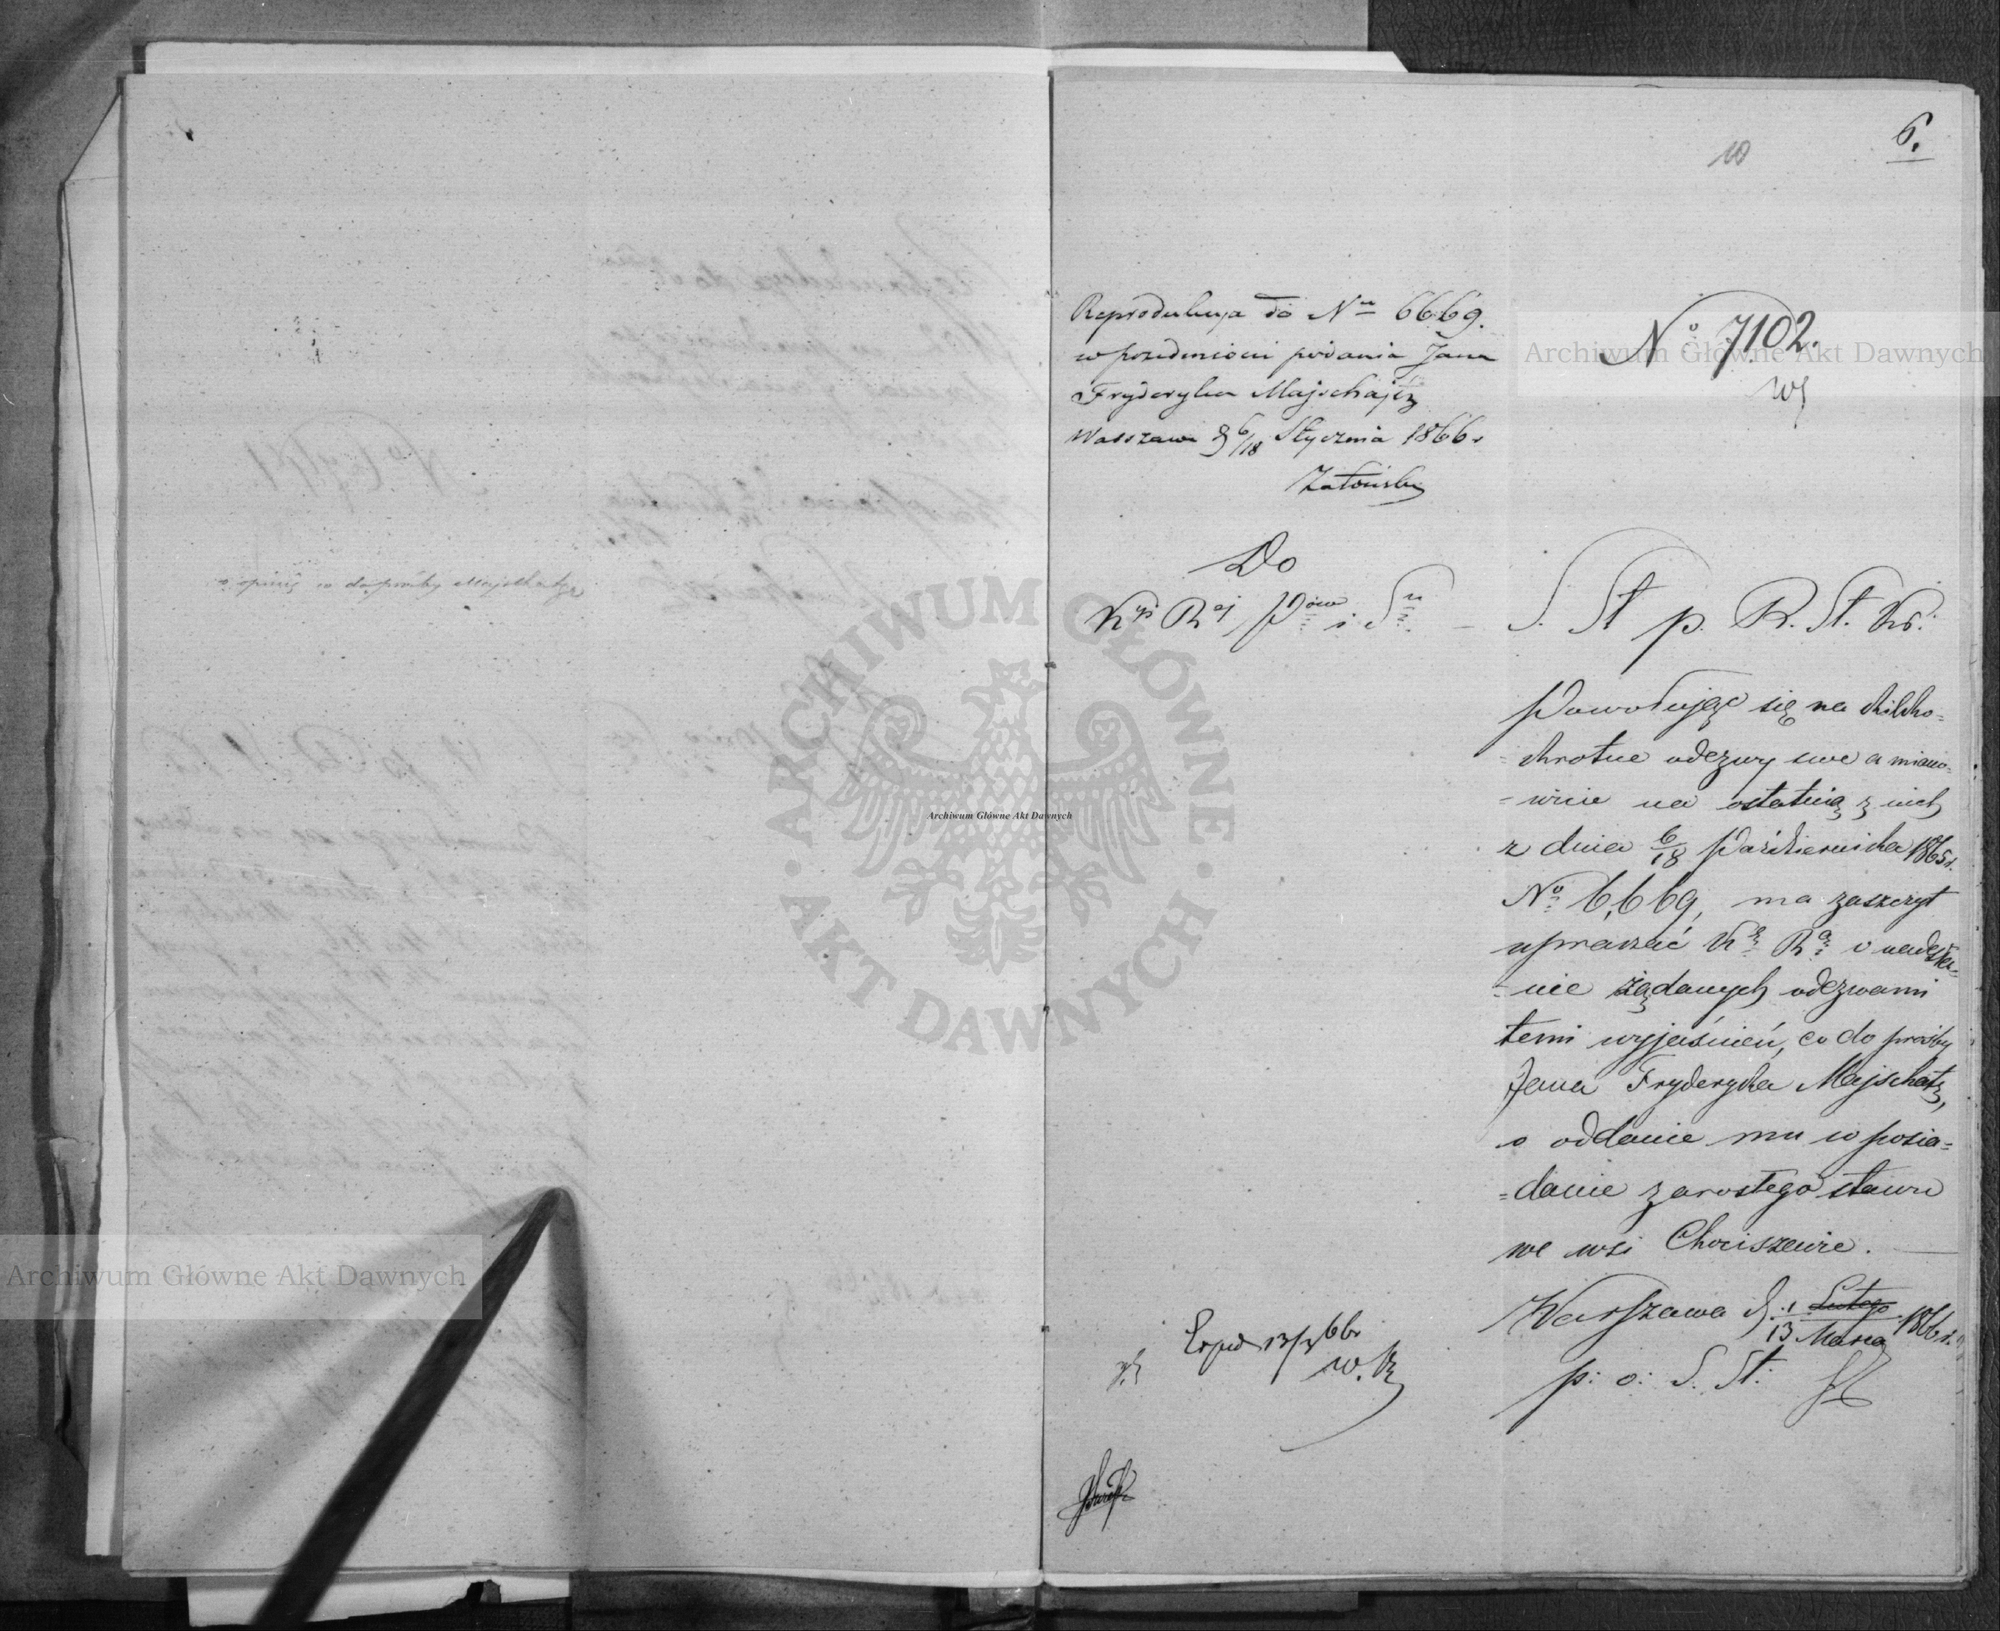 o opinię co do prośby Majschatza
10
6.
Reprodukcja do Nru 6669.
w przedmiocie podania Jana
Fryderyka Majschatz
Warszawa d 6/18 Stycznia 1866 r
No 7102.
Do
Kyi Rej Pów i Su
S. St p. R. St. Kr.
Powołując się na kilko=
=krotne odezwy swe a miano=
=wicie na ostatnią z nich
z dnia 6/18 Października 1865 r.
No 6,669, ma zaszczyt
upraszać Kę Rą o nadesła=
=nie żądanych odezwami
temi wyjaśnień, co do prośby
Jana Fryderyka Majschatz,
o oddanie mu w posia=
=danie zarosłego stawu
we wsi Chociszewie.
Warszawa d. 1/13 Lutego Marca 1866 r.
p: o: S. St:
Exped 13/3 66 r
Archiwum Główne Akt Dawnych
Archiwum Główne Akt Dawnych
Archiwum Główne Akt Dawnych
ARCHIWUM GŁÓWNE AKT DAWNYCH